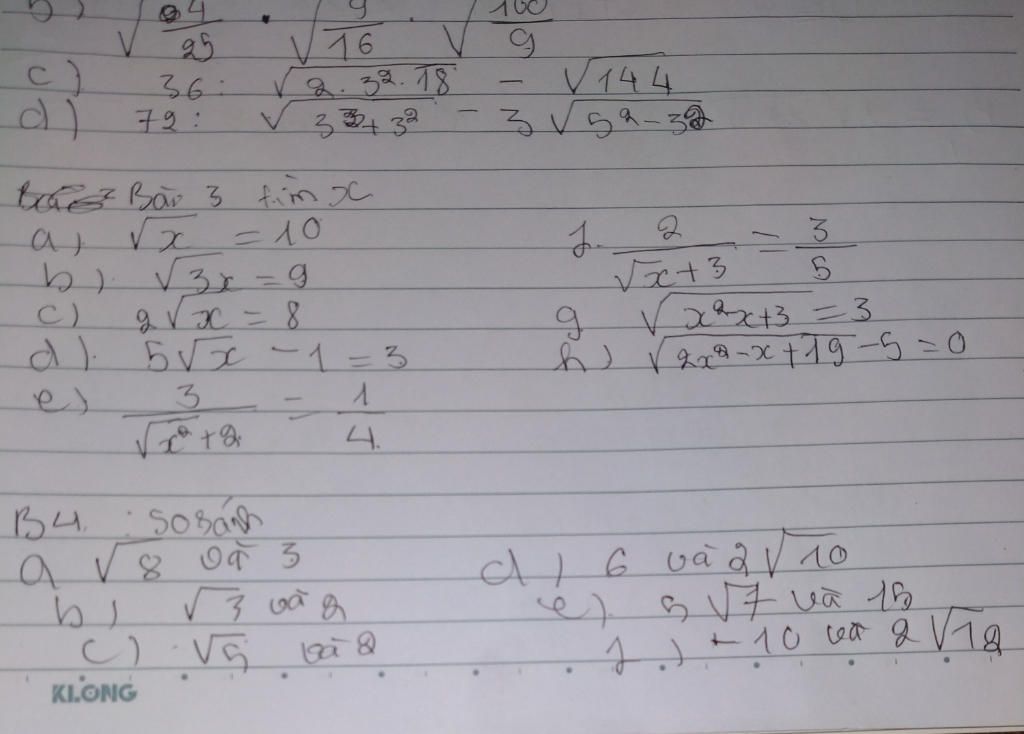 b) √4/25 . √9/16 . √100/9
c) 36 : √2 . 3² . 18 − √144
d) 72 : √3³ + 3² − 3√5² − 3²
Bài 3 tìm x
a) √x = 10
b) √3x = 9
c) 2√x = 8
d) 5√x − 1 = 3
e) 3/√x² + 2 = 1/4
f. 2/√x + 3 = 3/5
g √x² - x + 3 = 3
h) √2x² − x + 19 − 5 = 0
B4 : so sánh
a √8 và 3
b) √3 và 2
c) √5 và 2
d) 6 và 2√10
e) 5√7 và 15
f) −10 và 2√12
KLONG